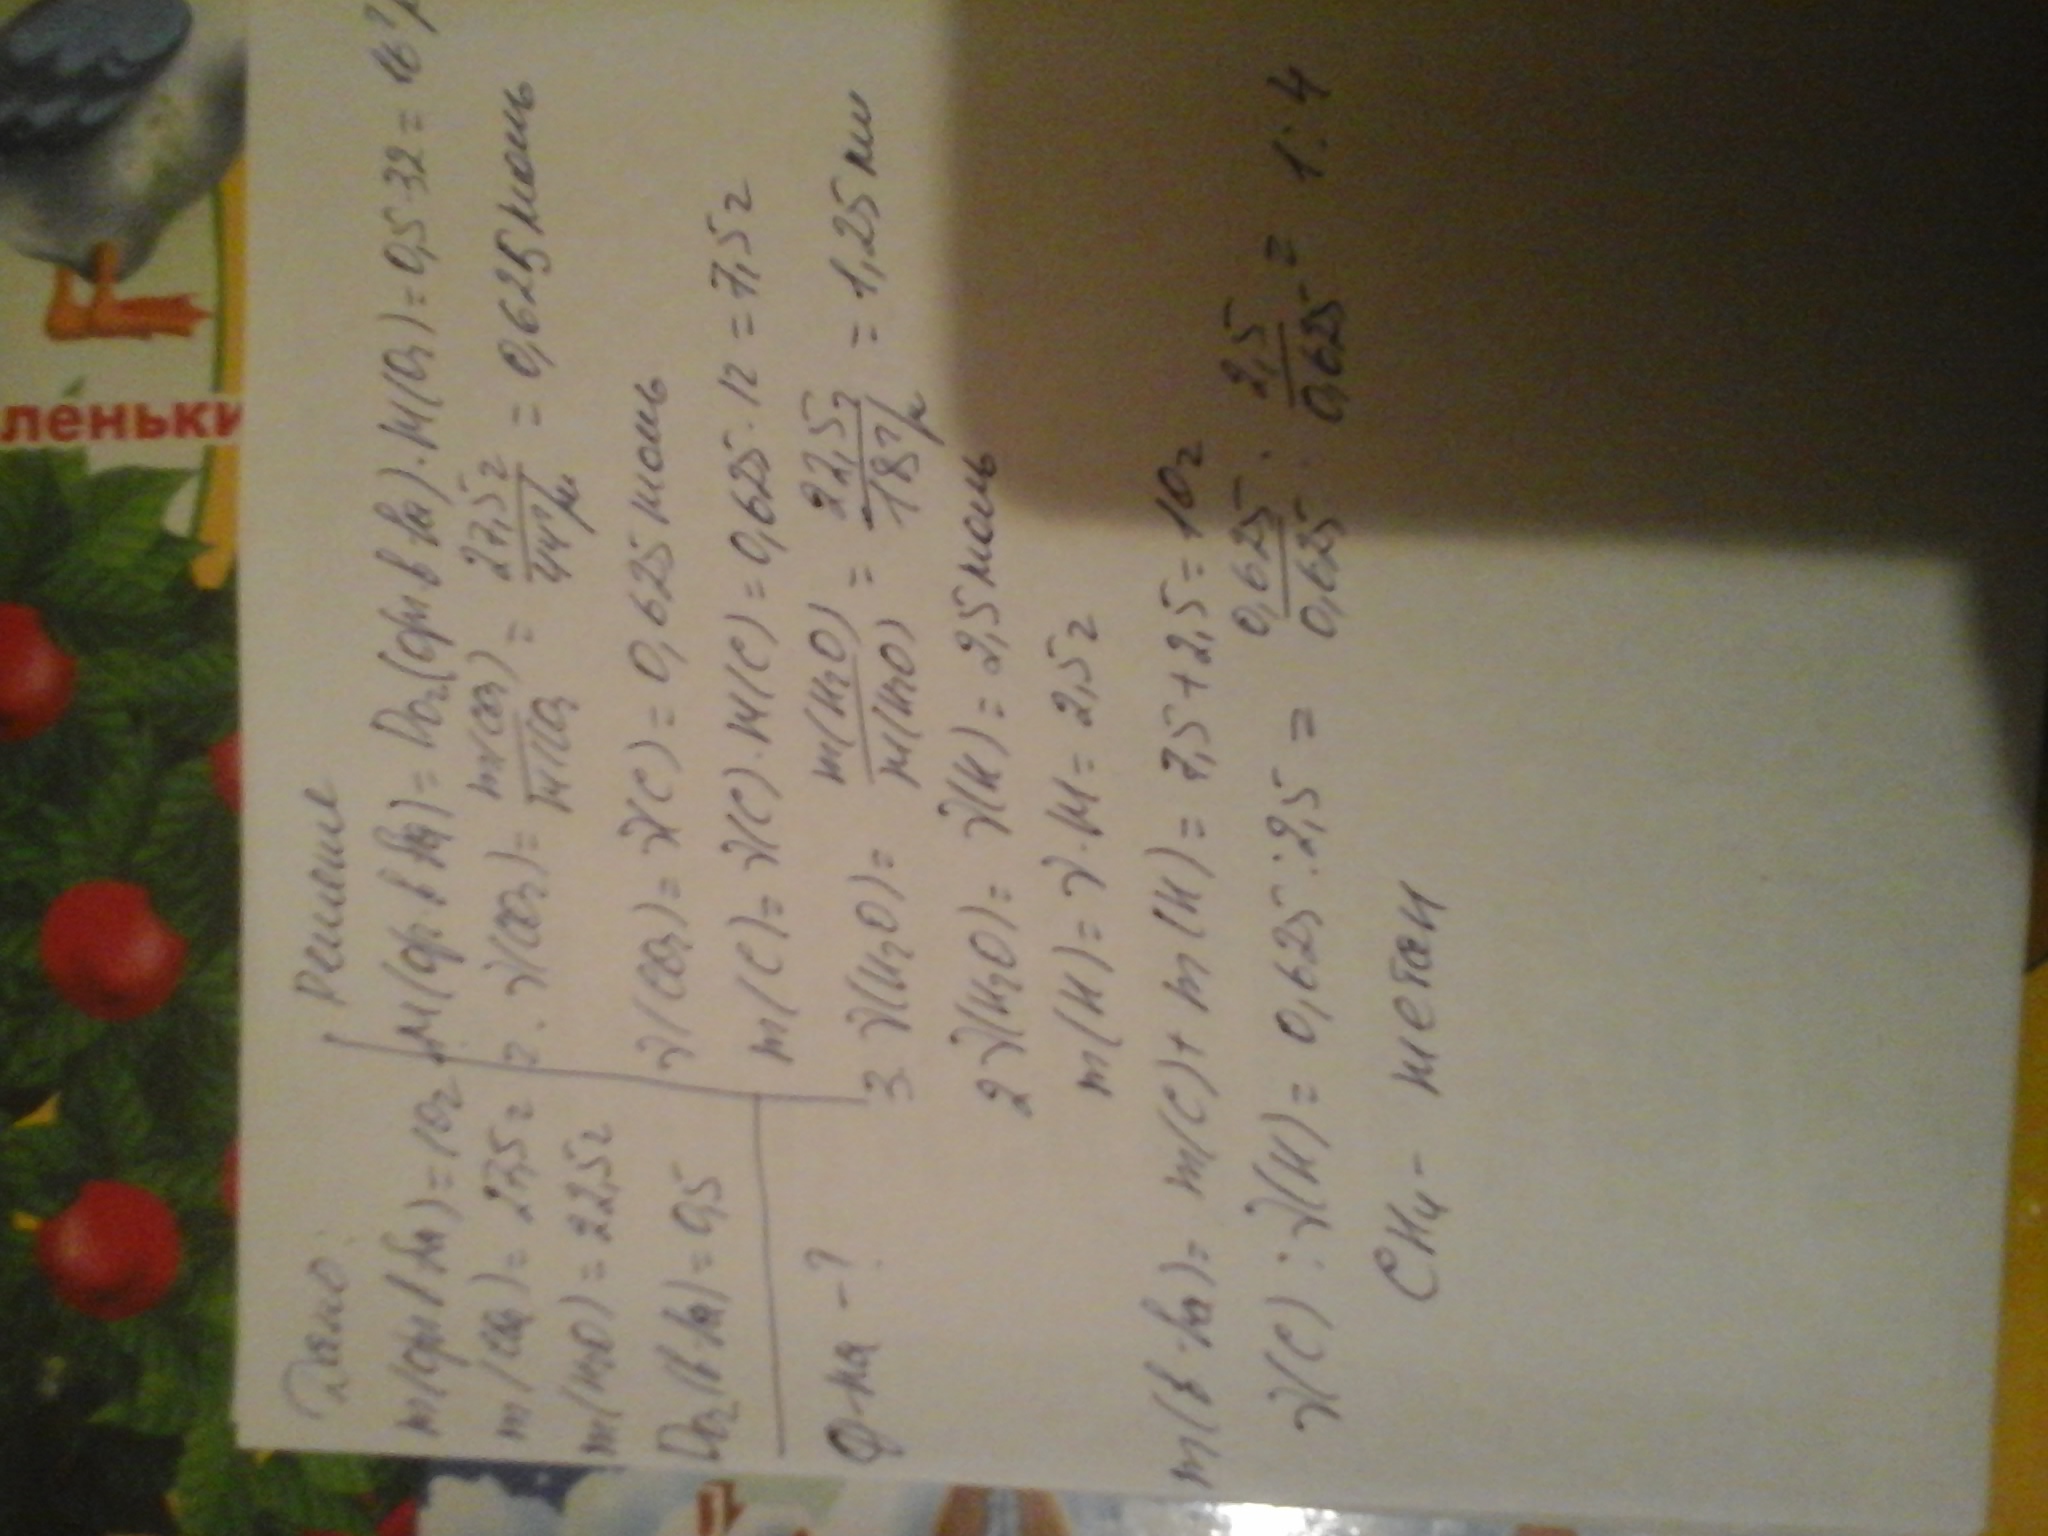 Дано:
m(орг в-ва) = 10г
m(CO2) = 27,5г
m(H2O) = 22,5г
DO2(в-ва) = 0,5
Ф-ла - ?
Решение
M(орг в-ва) = DO2(орг в ва)·M(O2) = 0,5·32 = 16 г/м
2. ν(CO2) = m(CO2)/M(CO2) = 27,5г/44г/м = 0,625 моль
ν(CO2) = ν(C) = 0,625 моль
m(C) = ν(C)·M(C) = 0,625·12 = 7,5г
3 ν(H2O) = m(H2O)/M(H2O) = 22,5г/18г/м = 1,25 мол
2ν(H2O) = ν(H) = 2,5 моль
m(H) = ν·M = 2,5г
m(в-ва) = m(C) + m(H) = 7,5 + 2,5 = 10г
ν(C) : ν(H) = 0,625 : 2,5 = 0,625/0,625 : 2,5/0,625 = 1:4
CH4 - метан
леньки